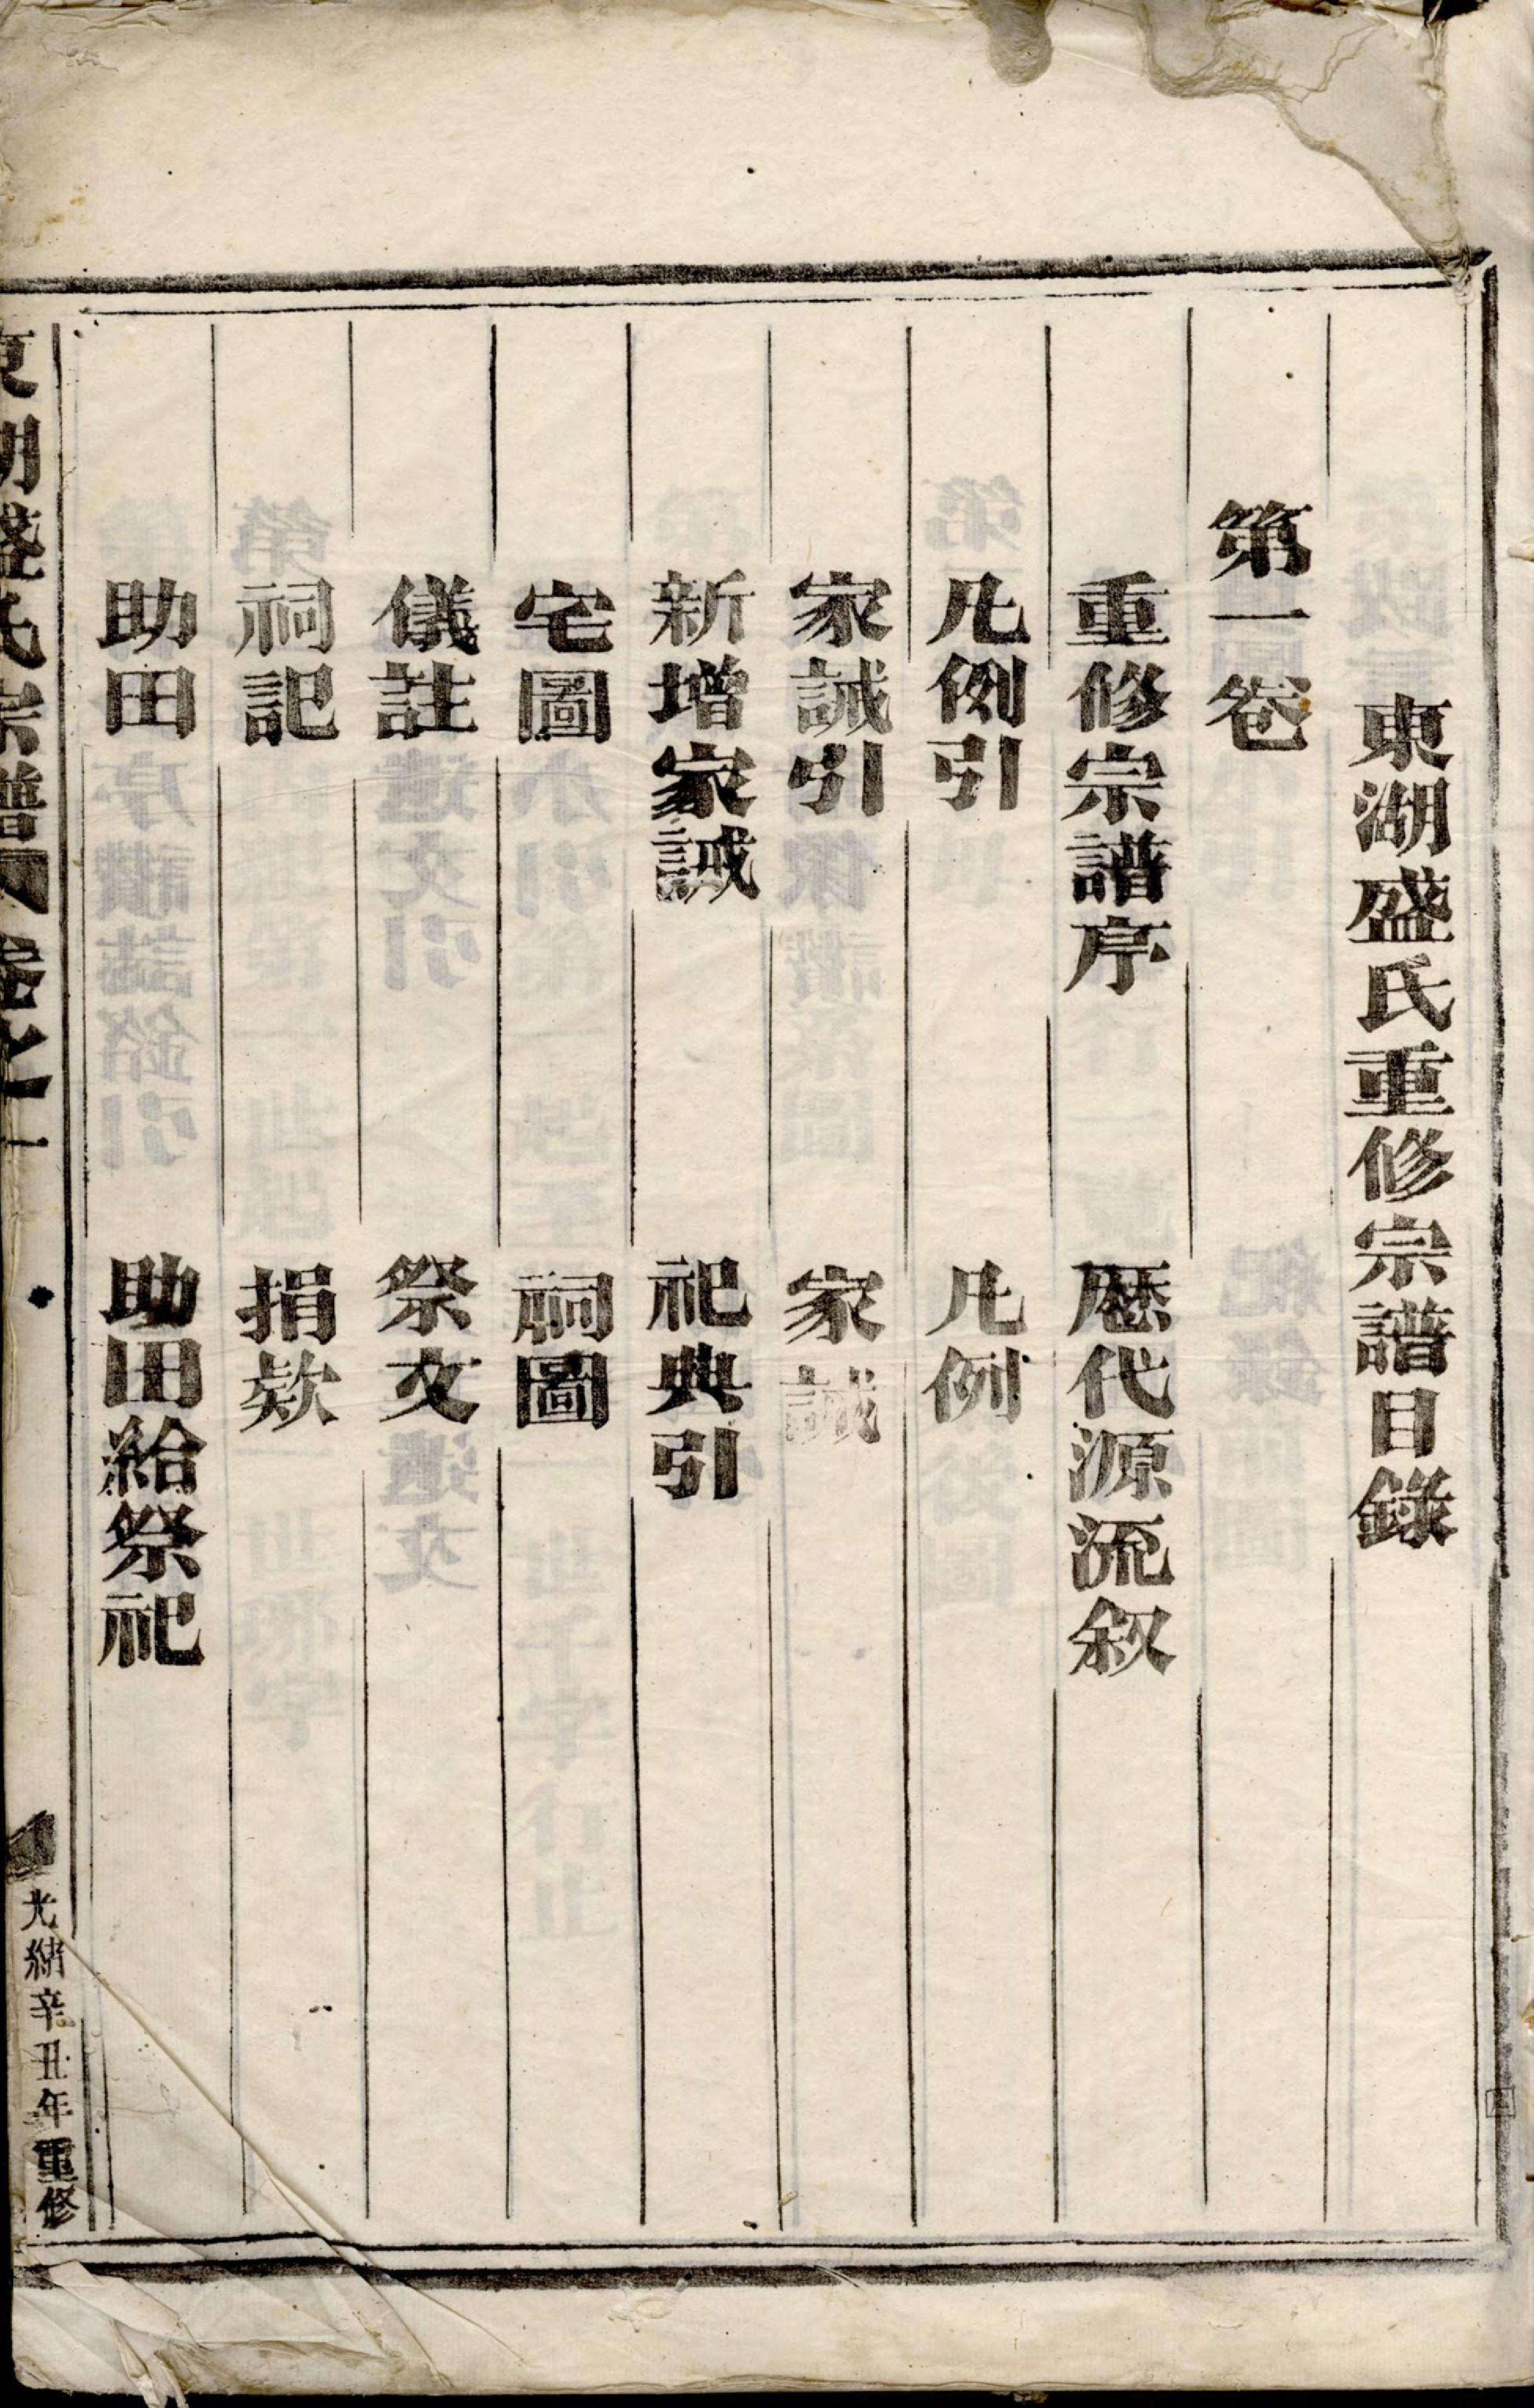 東湖盛氏重修宗譜目錄
第一卷
重修宗譜序　歷代源流叙
凡例引　凡例
家誡引　家誡
新增家誡　祀典引
宅圖　祠圖
儀註　祭文
祠記　捐欵
助田　助田給祭祀
東湖盛氏宗譜　卷之一
光緒辛丑年重修